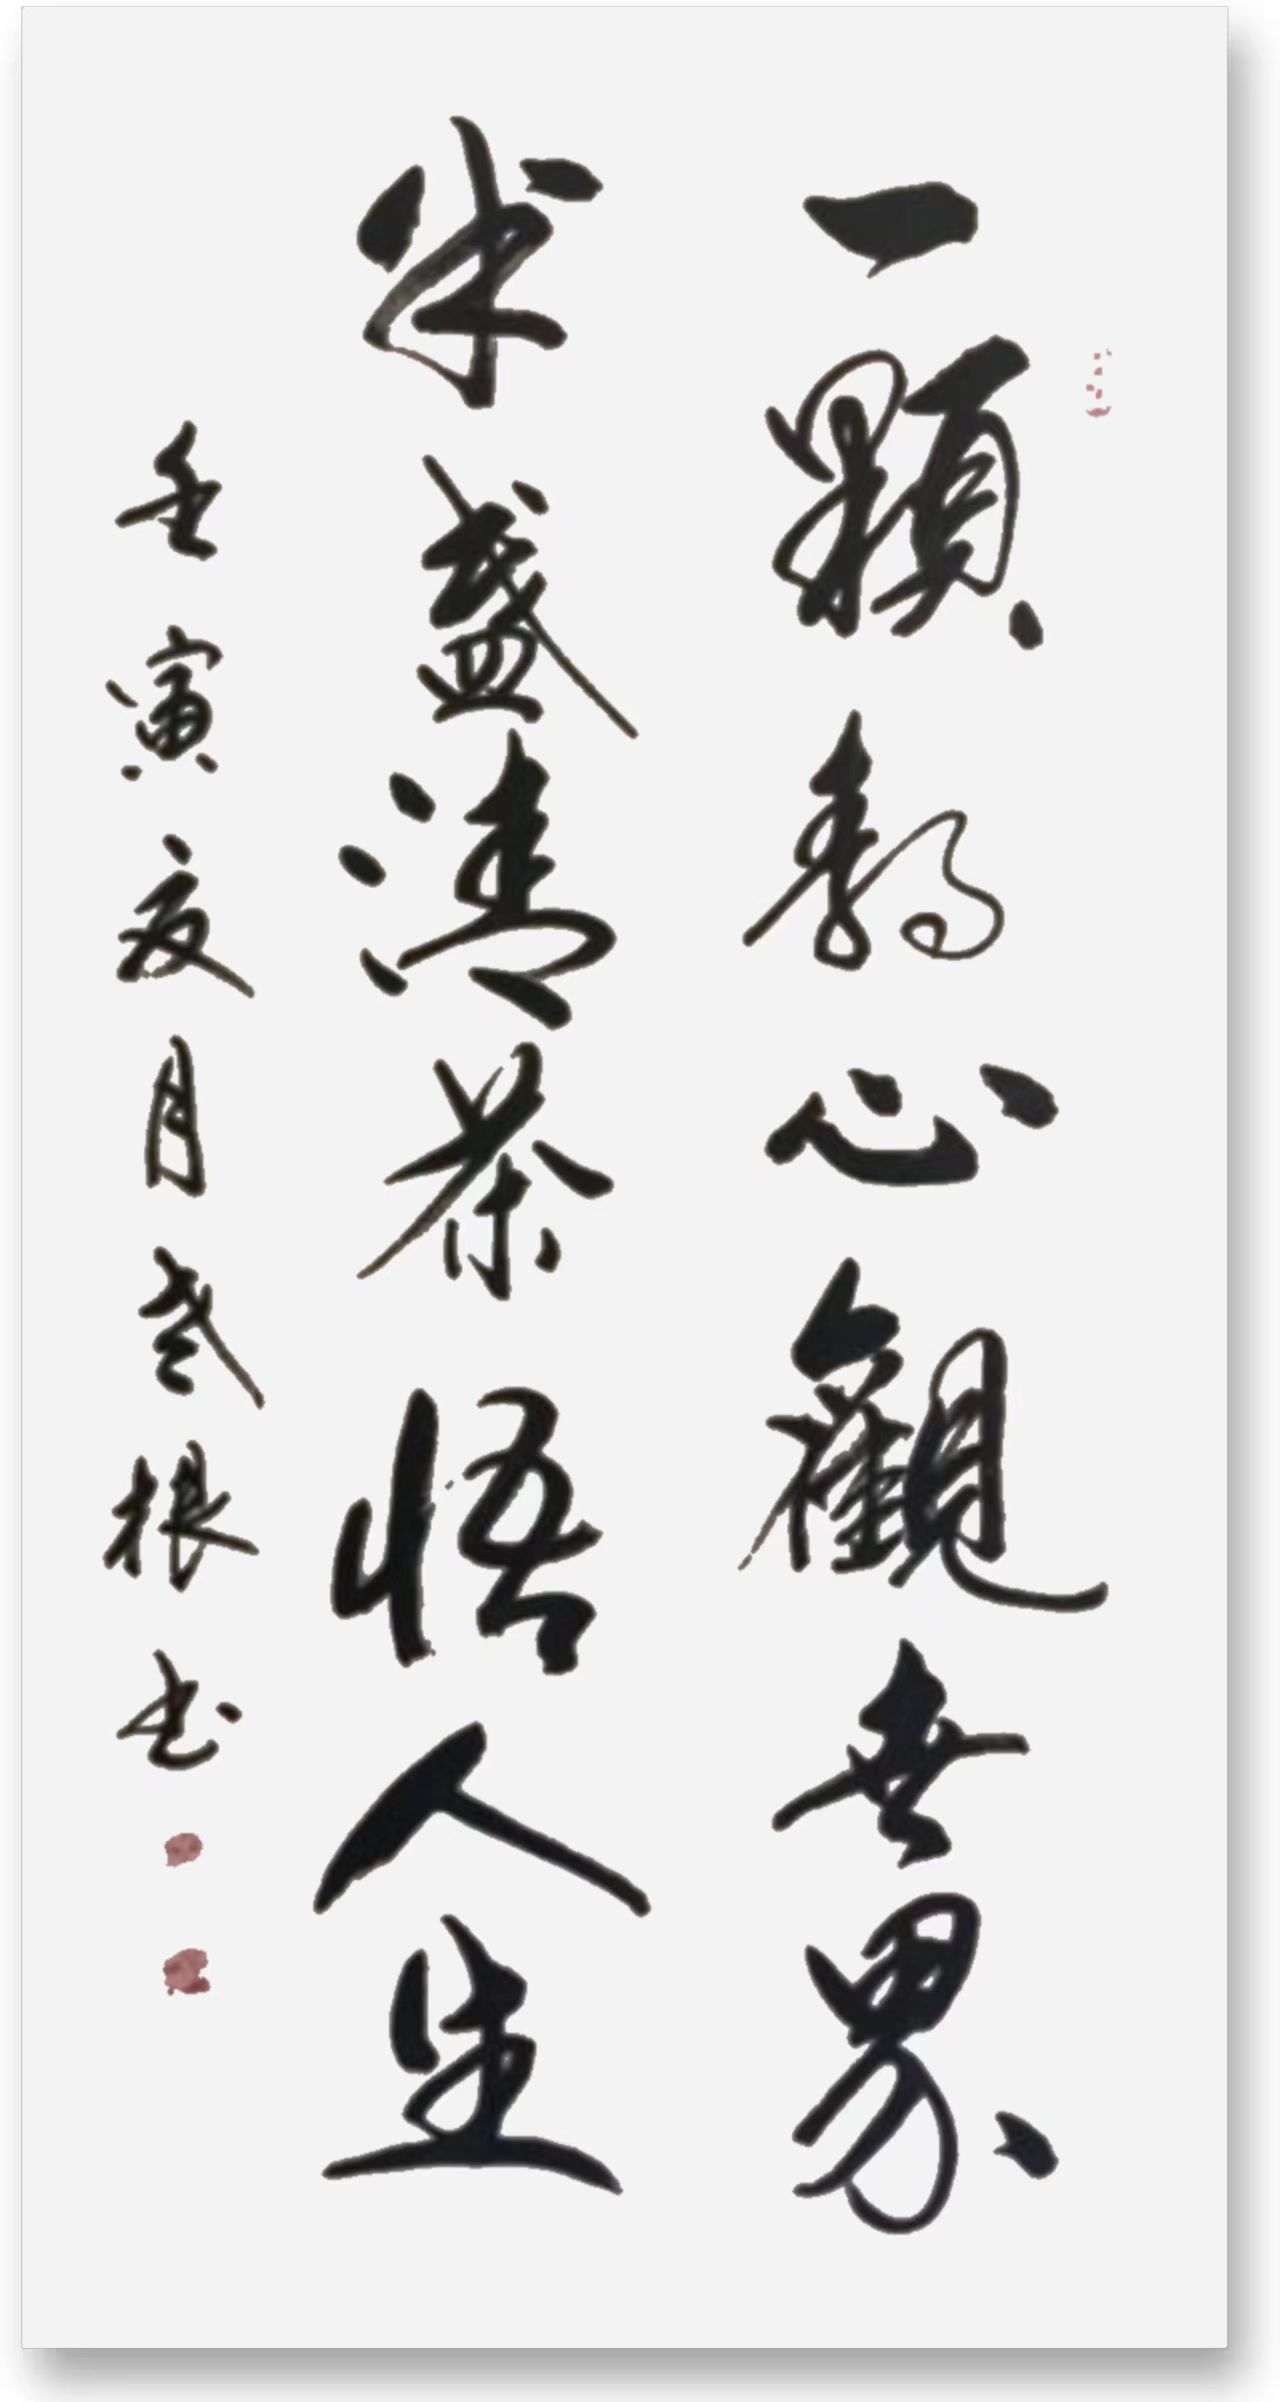 一顆静心觀世界
半盞清茶悟人生
壬寅夏月老根书